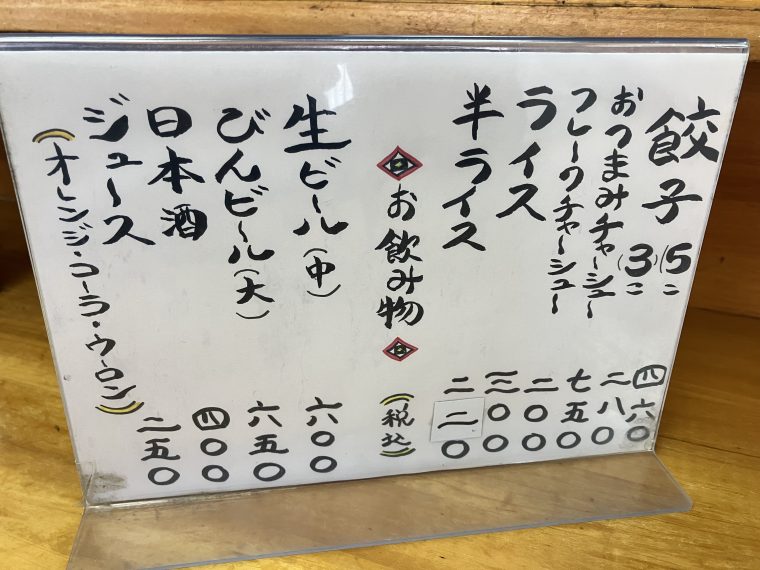 餃子 (5)こ 四六〇
(3)こ 二八〇
おつまみチャーシュー 七五〇
フレークチャーシュー 二〇〇
ライス 三〇〇
半ライス 二二〇
お飲み物 (税込)
生ビール(中) 六〇〇
びんビール(大) 六五〇
日本酒 四〇〇
ジュース 二五〇
(オレンジ・コーラ・ウーロン)